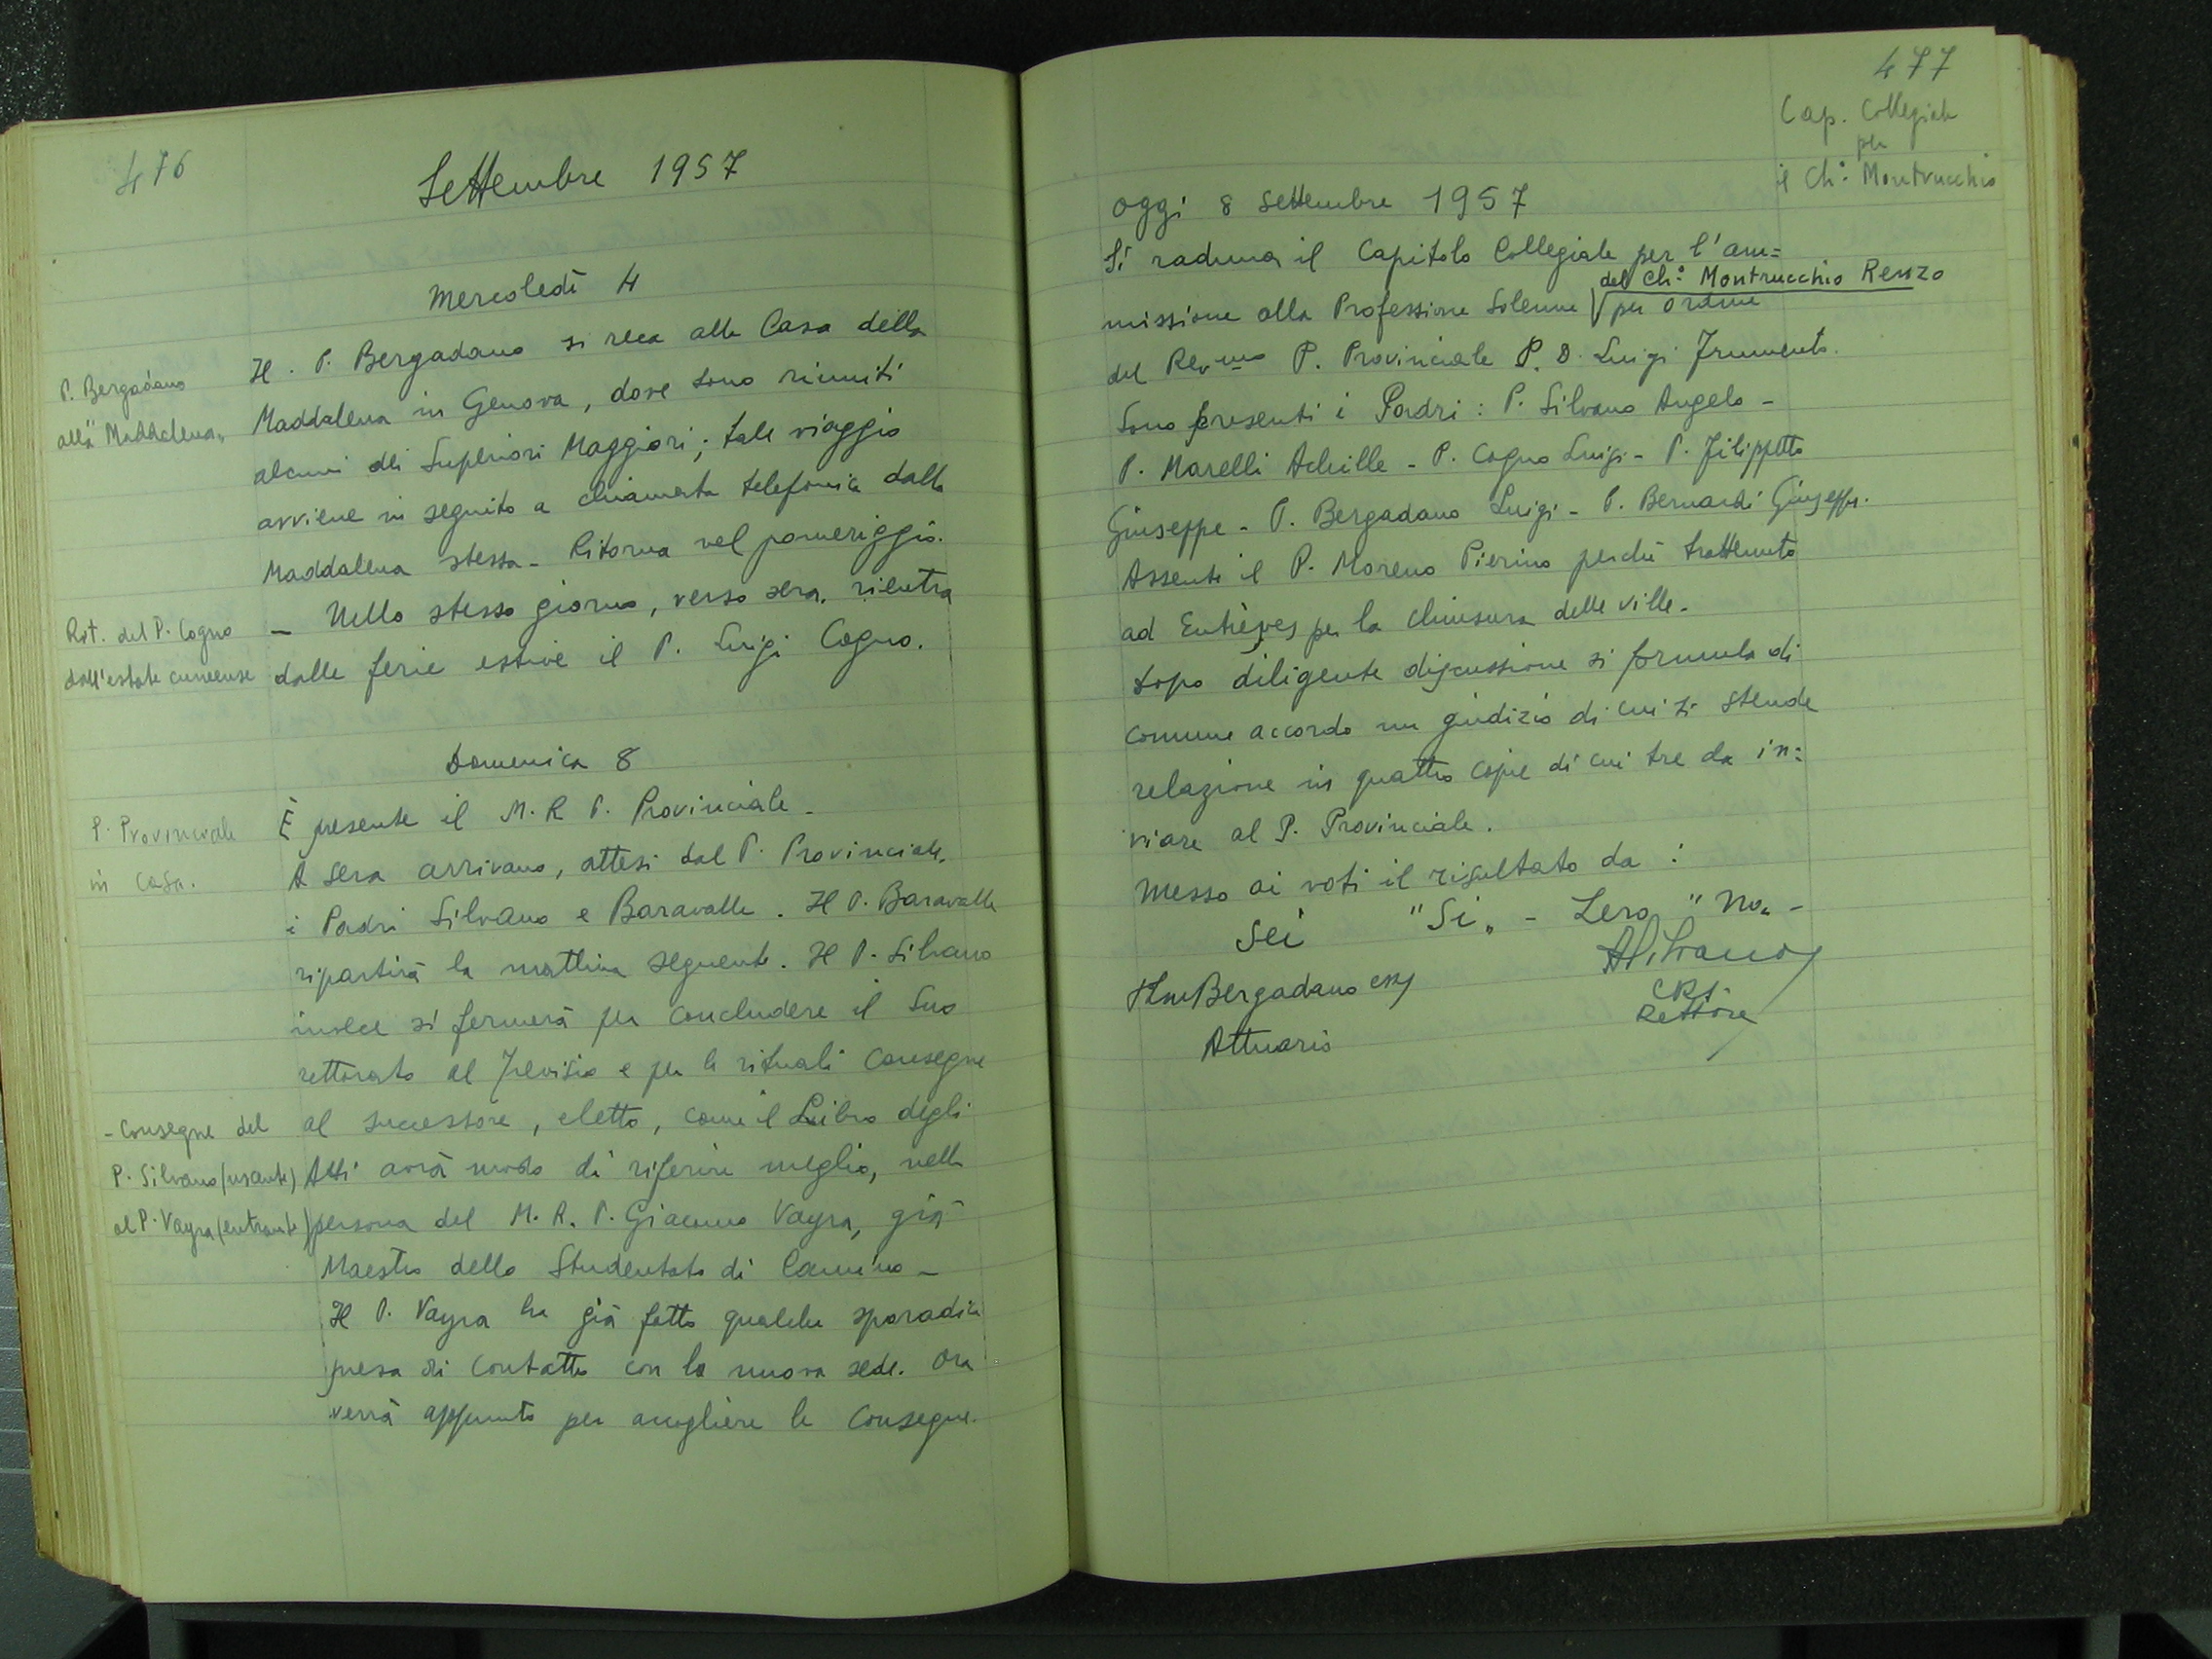 476
Settembre 1957
Mercoledì 4
P. Bergadano
alla "Maddalena"
Il P. Bergadano si reca alla Casa della
Maddalena in Genova, dove sono riuniti
alcuni dei Superiori Maggiori; tale viaggio
avviene in seguito a chiamata telefonica dalla
Maddalena stessa - Ritorna nel pomeriggio.
Rit. del P. Cogno
dall'estate cuneense
- Nello stesso giorno, verso sera, rientra
dalle ferie estive il P. Luigi Cogno.
Domenica 8
P. Provinciale
in casa.
È presente il M. R. P. Provinciale -
A sera arrivano, attesi dal P. Provinciale,
i Padri Silvano e Baravalle. Il P. Baravalle
ripartirà la mattina seguente. Il P. Silvano
invece si fermerà per concludere il suo
rettorato al Trevisio e per le rituali consegne
- Consegne del
P. Silvano (usante)
al P. Vayra (entrante)
al successore, eletto, come il Libro degli
Atti avrà modo di riferire meglio, nella
persona del M. R. P. Giacomo Vayra, già
Maestro dello Studentato di Camino -
Il P. Vayra ha già fatto qualche sporadica
presa di contatto con la nuova sede. Ora
verrà appunto per accogliere le consegne.
477
Cap. Collegiale
per
il Ch.º Montrucchio
oggi 8 settembre 1957
Si raduna il Capitolo Collegiale per l'am=
del Ch.º Montrucchio Renzo
missione alla Professione Solenne per ordine
del Rev.mo P. Provinciale P. D. Luigi Frumento.
Sono presenti i Padri: P. Silvano Angelo -
P. Marelli Achille - P. Cogno Luigi - P. Filippetto
Giuseppe - P. Bergadano Luigi - P. Bernardi Giuseppe.
Assente il P. Moreno Pierino perché trattenuto
ad Entrèves per la chiusura delle ville -
Dopo diligente discussione si formula di
comune accordo un giudizio di cui si stende
relazione in quattro copie di cui tre da in=
viare al P. Provinciale.
Messo ai voti il risultato da :
Sei "Si" - Zero "No" -
Bergadano crs
Attuario
ASilvano
CRS.
Rettore